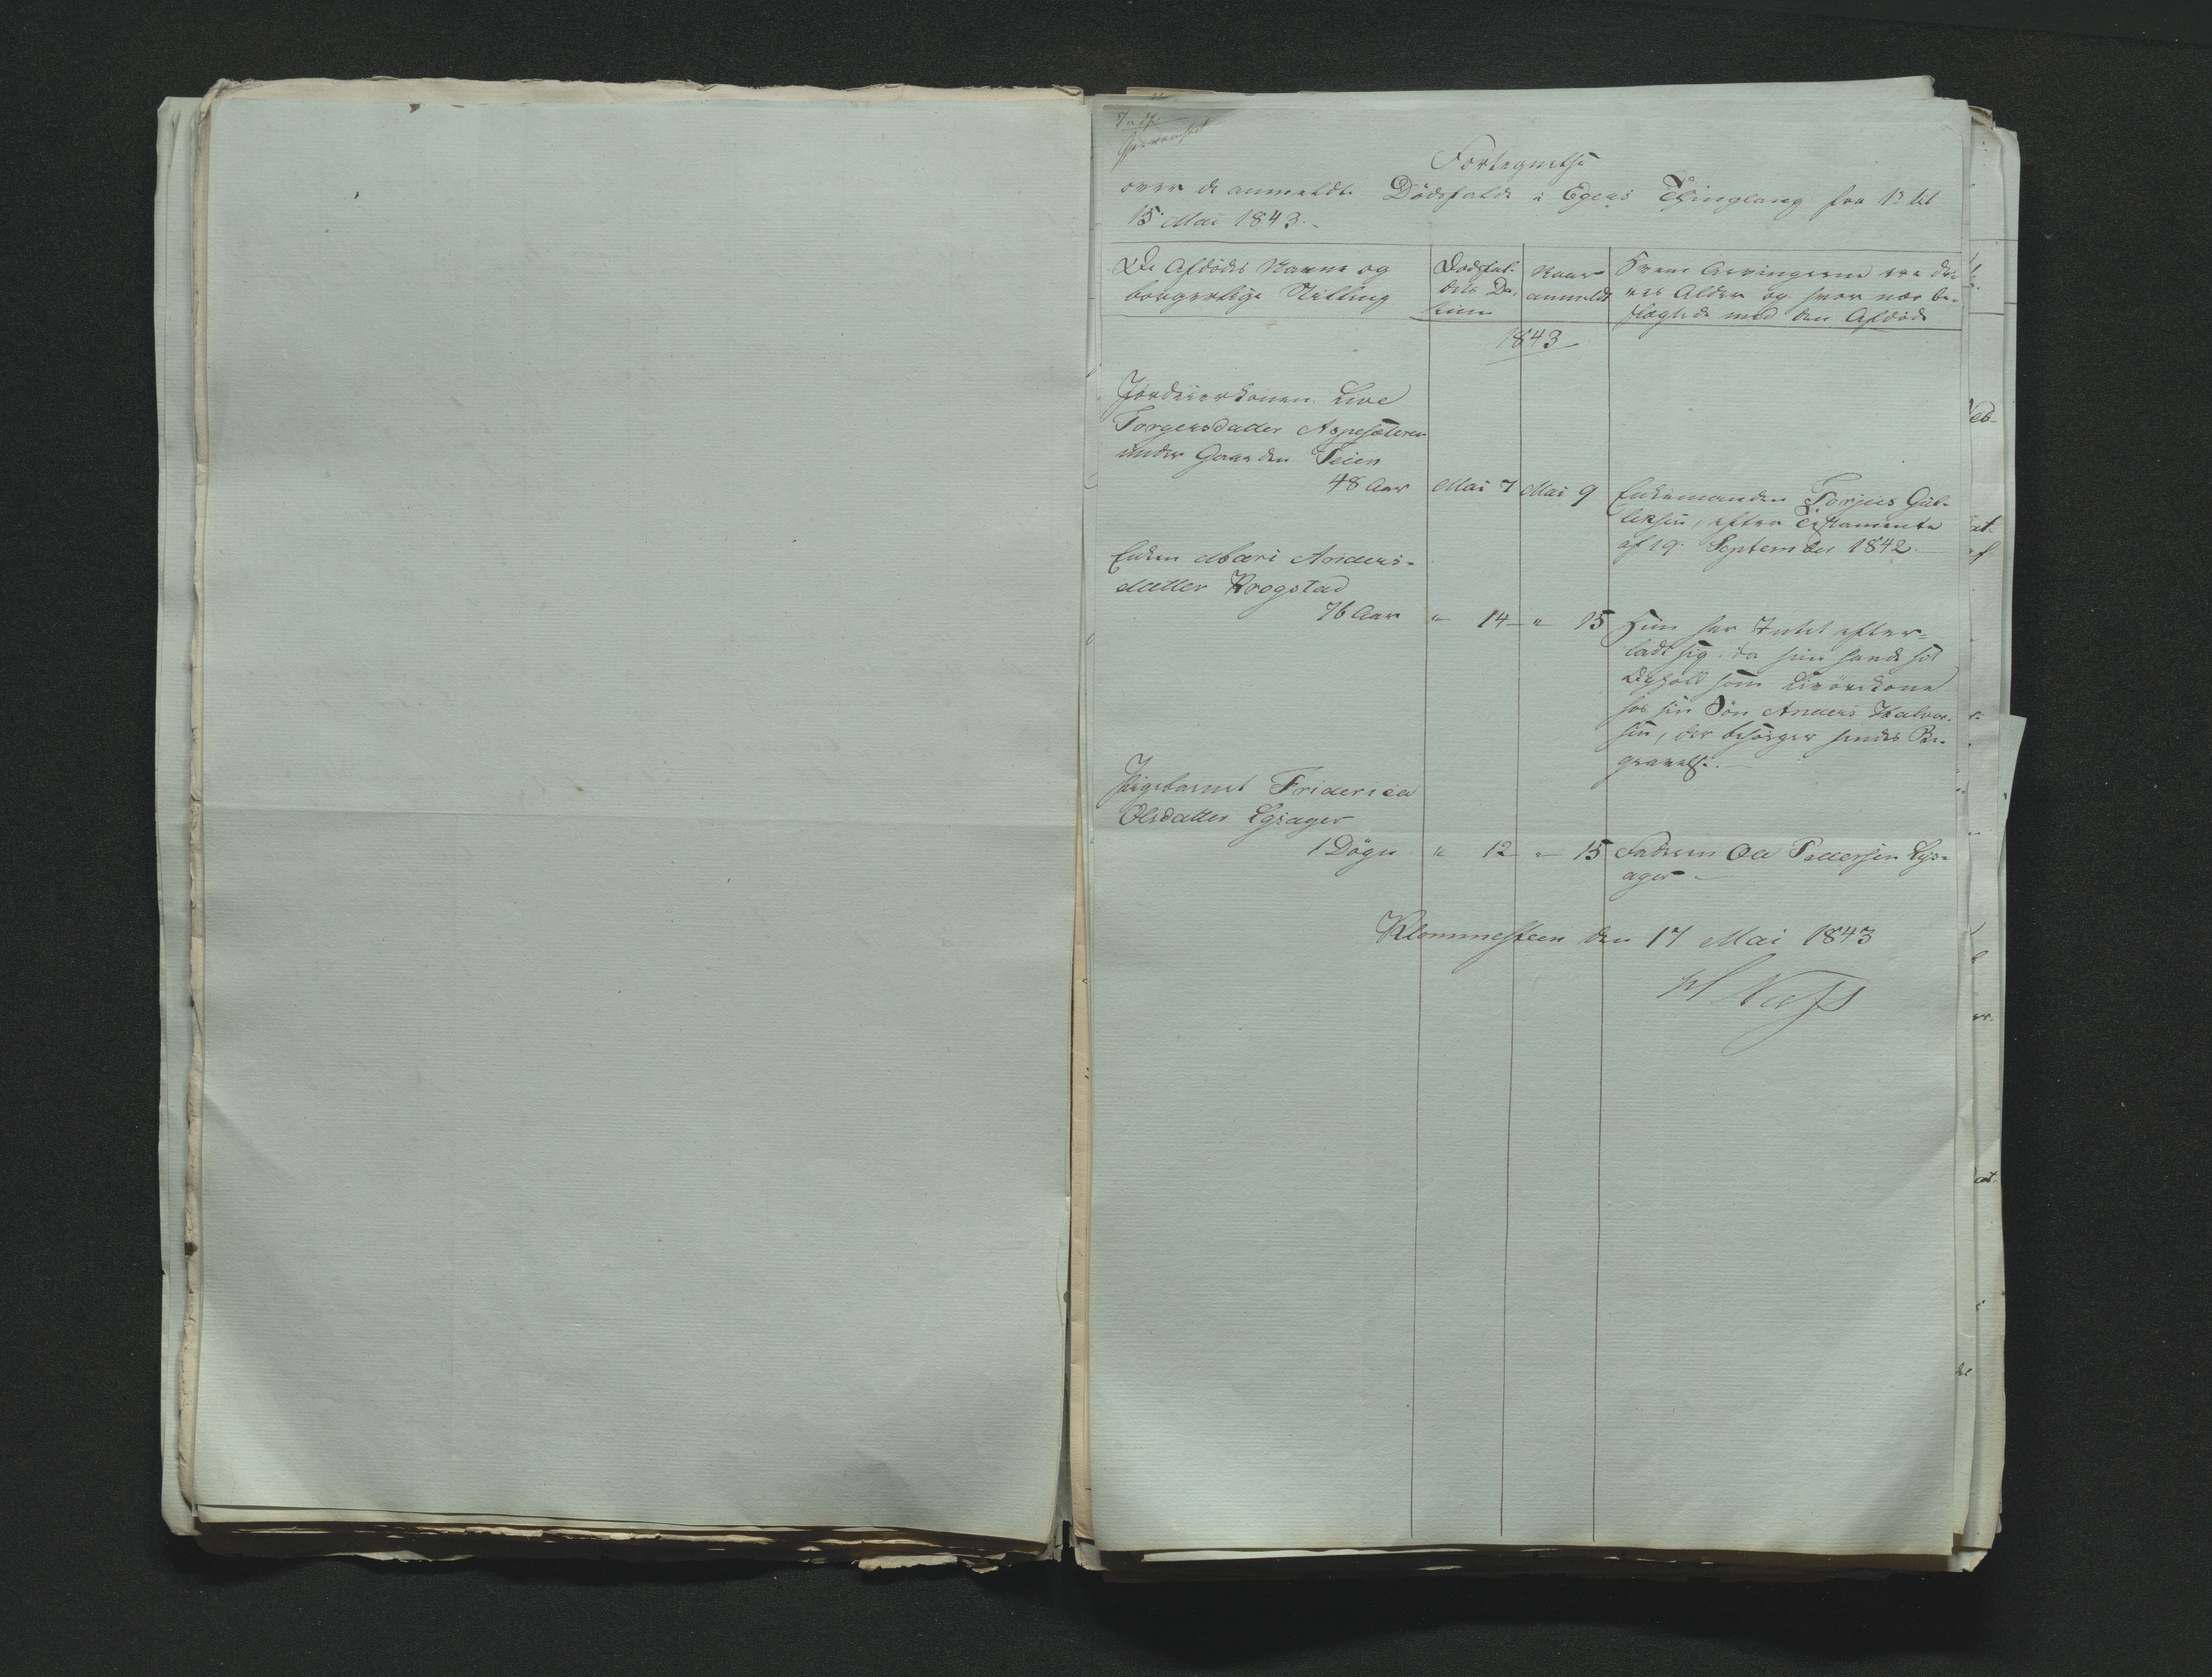 Fortegnelse
over de anmeldte Dødsfalde i Egers Thinglaug fra 1ste til
15 Mai 1843.
De Afdødes Navne og borgerlige Stilling
Dødsfaldets Datum
Naar anmeldt
Hvem Arvingerne ere de-
res Alder og hvor nær be-
slægtede med den Afdøde
1843
Jordeierkonen Live
Torgersdatter Aspesæteren
under Gaarden Teien
48 Aar Mai 7 Mai 9 Enkemanden Torjus Gul-
liksen, efter Testamente
af 19 September 1842.
Enken Mari Anders-
datter Krogstad
76 Aar " 14 - " 15 Hun har Intet efter-
ladt sig da hun havde sit
Ophold som Livørekone
hos sin Søn Anders Halvor-
sen, der besørger hendes Be-
gravelse.
Pigebarnet Friderica
Olsdatter Lysager
1 Døgn " 12 - " 15 Faderen Ole Pettersen Lys-
ager
Klommesteen den 17 Mai 1843